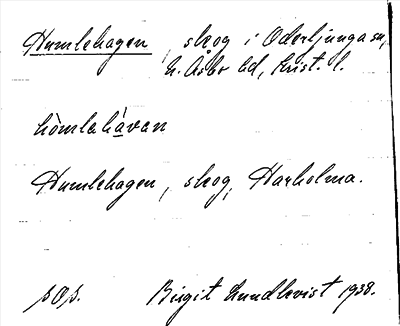 Humlehagen, skog i Oderljunga sn,
N. Åsbo hd, Krist. l.
hòmlehávan
Humlehagen, skog, Harholma.
s. O. s. Birgit Lundkvist 1938.